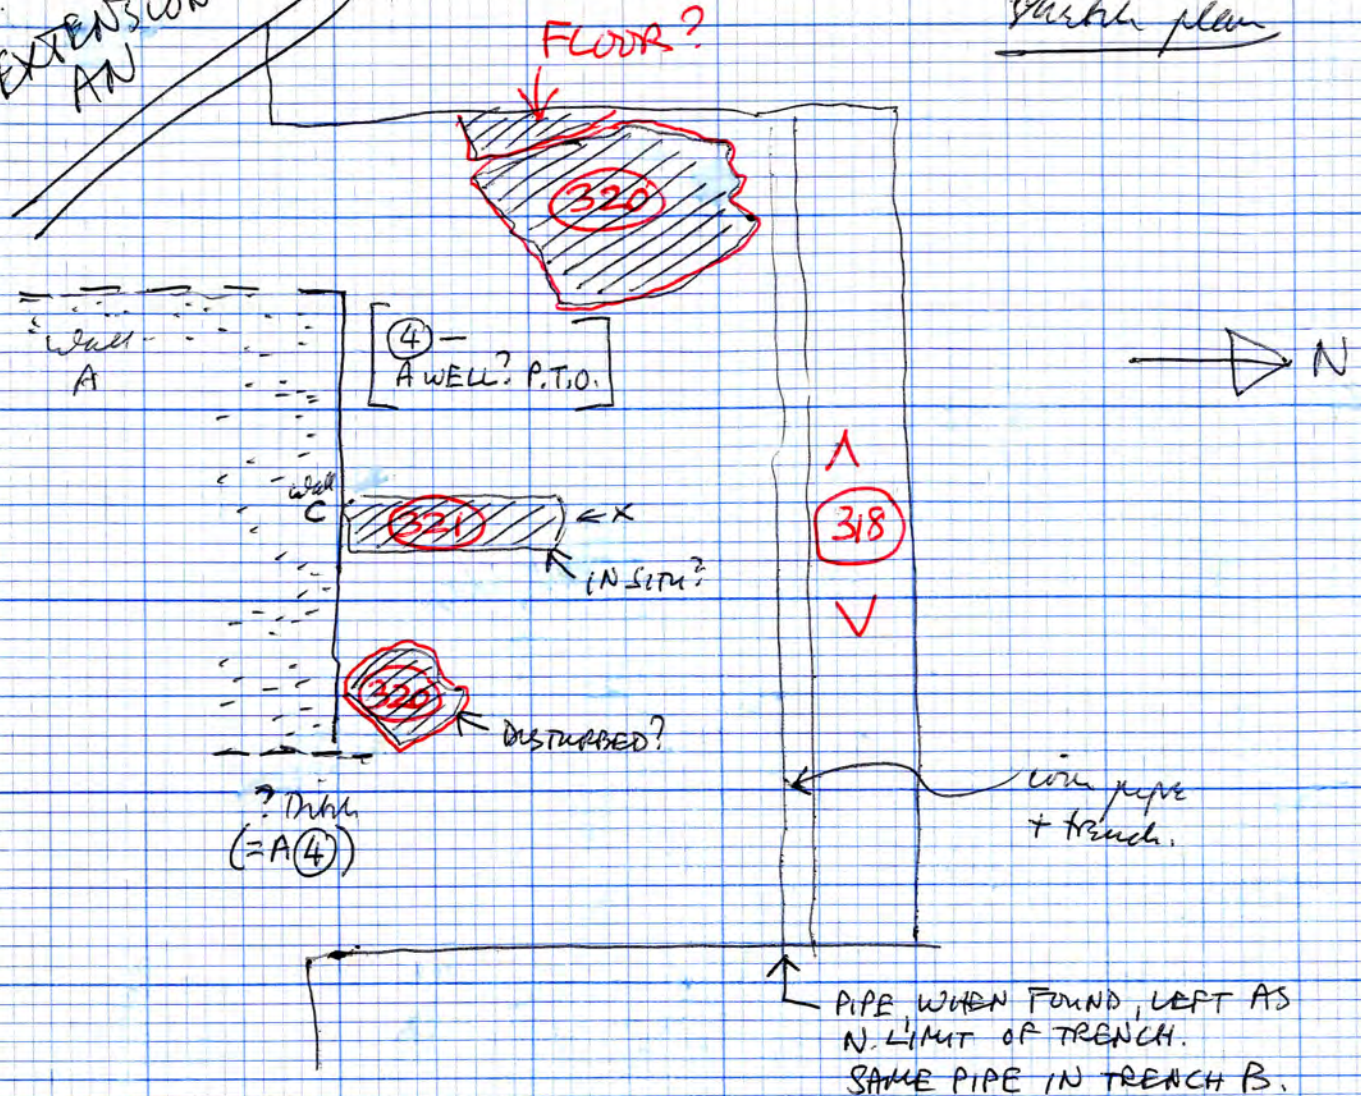 EXTENSION
AN
Sketch plan
FLOOR?
320
Wall
A
④ —
A WELL? P.T.O.
N
Wall
C
321
← X
IN SITU?
318
320
DISTURBED?
? Ditch
(=A④)
iron pipe
+ trench.
PIPE, WHEN FOUND, LEFT AS
N. LIMIT OF TRENCH.
SAME PIPE IN TRENCH B.